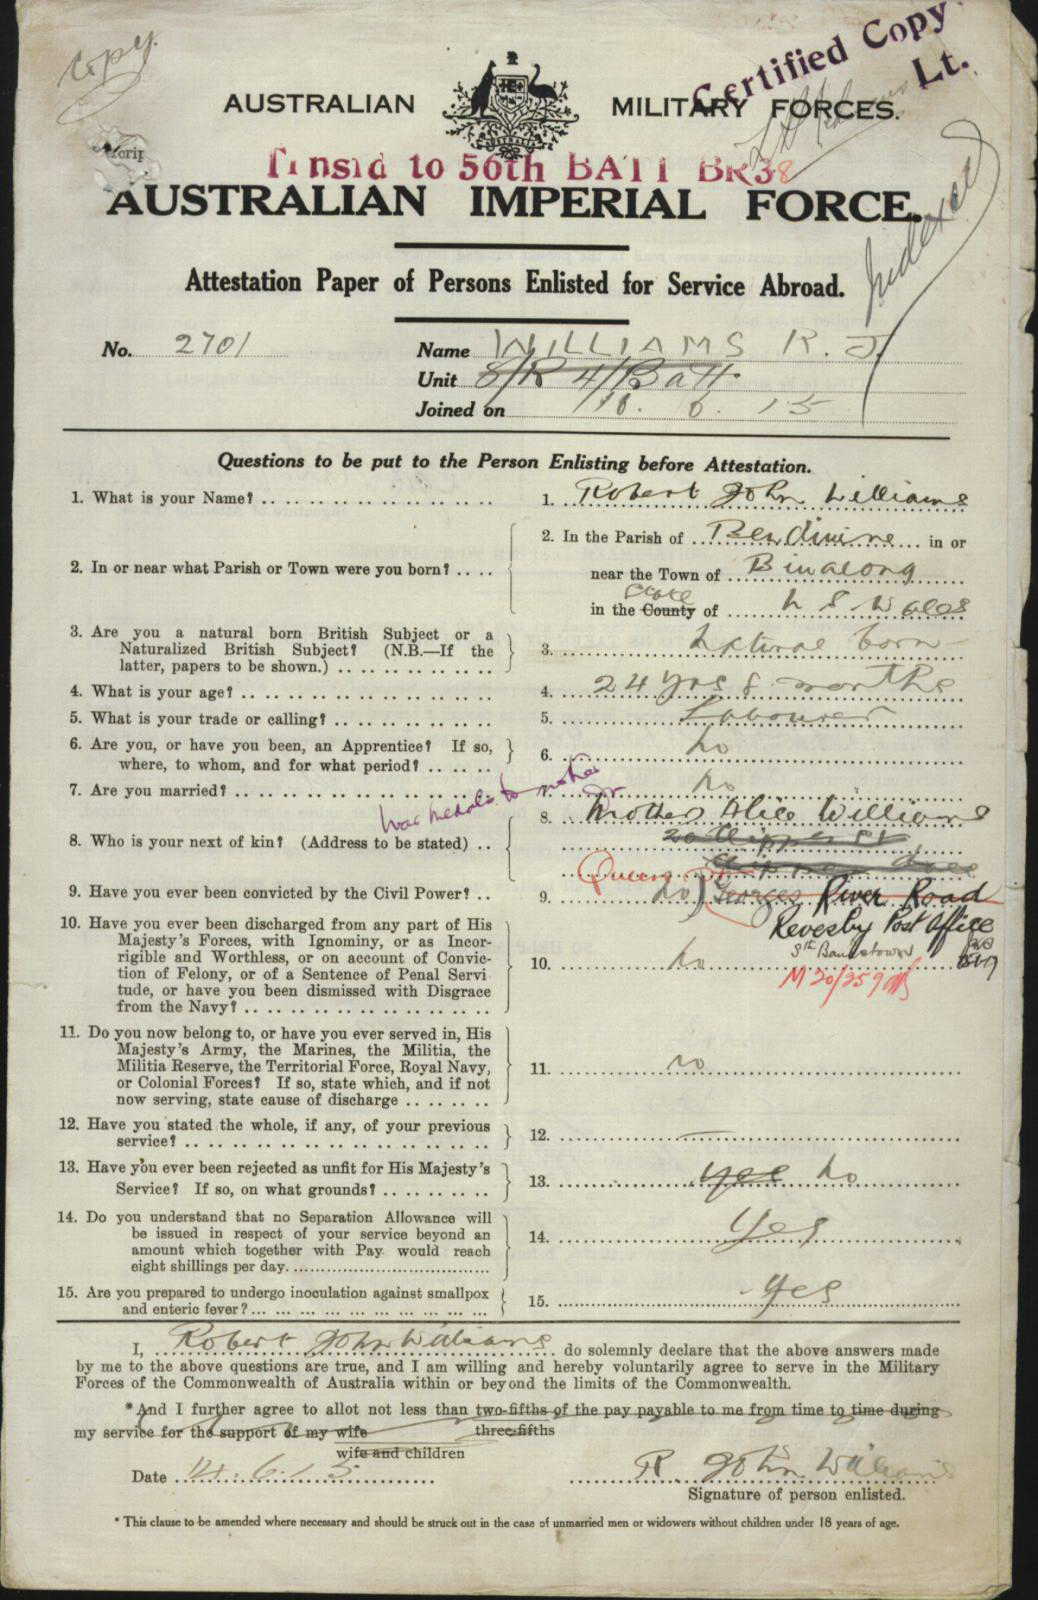 Copy
Certified Copy
Lt.
AUSTRALIAN MILITARY FORCES.
AUSTRALIA
Trnsfd to 56th BATT BR38
AUSTRALIAN IMPERIAL FORCE.
Indexed
Attestation Paper of Persons Enlisted for Service Abroad.
No. 2701
Name WILLIAMS R. J.
Unit 8/R 4/Batt.
Joined on 6. 15
Questions to be put to the Person Enlisting before Attestation.
1. What is your Name? 1. Robert John Williams
2. In or near what Parish or Town were you born? 2. In the Parish of Bendinine in or
near the Town of Binalong
State
in the County of N S Wales
3. Are you a natural born British Subject or a
Naturalized British Subject? (N.B.—If the
latter, papers to be shown.) 3. Natural born
4. What is your age? 4. 24 yrs 8 months
5. What is your trade or calling? 5. Labourer
6. Are you, or have you been, an Apprentice? If so,
where, to whom, and for what period? 6. no
7. Are you married? 7. no
War medals to mother
8. Who is your next of kin? (Address to be stated) 8. Mother Alice Williams
Queens
9. Have you ever been convicted by the Civil Power? 9. no Georges River Road
Revesby Post Office
Sth Bankstown
M 20/259
10. Have you ever been discharged from any part of His
Majesty's Forces, with Ignominy, or as Incor-
rigible and Worthless, or on account of Convic-
tion of Felony, or of a Sentence of Penal Servi
tude, or have you been dismissed with Disgrace
from the Navy? 10. no
11. Do you now belong to, or have you ever served in, His
Majesty's Army, the Marines, the Militia, the
Militia Reserve, the Territorial Force, Royal Navy,
or Colonial Forces? If so, state which, and if not
now serving, state cause of discharge 11. no
12. Have you stated the whole, if any, of your previous
service? 12. —
13. Have you ever been rejected as unfit for His Majesty's
Service? If so, on what grounds? 13. yes no
14. Do you understand that no Separation Allowance will
be issued in respect of your service beyond an
amount which together with Pay would reach
eight shillings per day. 14. Yes
15. Are you prepared to undergo inoculation against smallpox
and enteric fever? 15. Yes
I, Robert John Williams do solemnly declare that the above answers made
by me to the above questions are true, and I am willing and hereby voluntarily agree to serve in the Military
Forces of the Commonwealth of Australia within or beyond the limits of the Commonwealth.
*And I further agree to allot not less than two-fifths of the pay payable to me from time to time during
my service for the support of my wife three-fifths
wife and children
Date 11.6.15 R. John Williams
Signature of person enlisted.
* This clause to be amended where necessary and should be struck out in the case of unmarried men or widowers without children under 18 years of age.